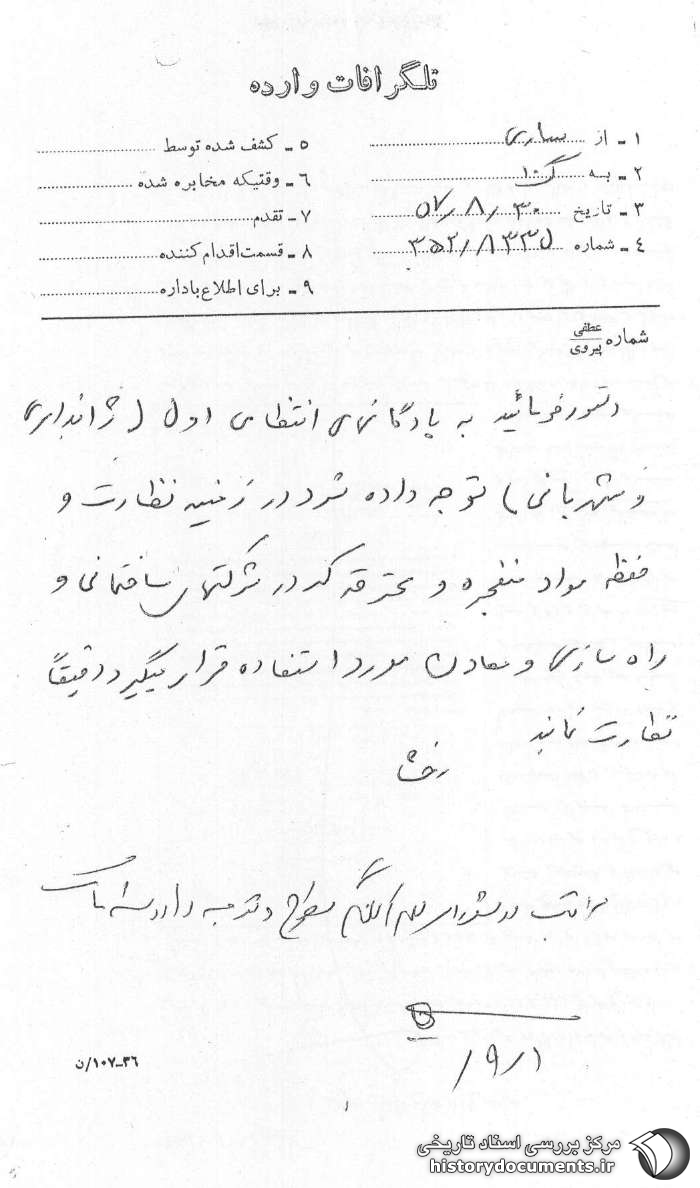 تلگرافات وارده
۱ - از ساری
۲ - به گ ۱۰
۳ - تاریخ ۵۷/۸/۳۰
۴ - شماره ۳۵۲/۸۳۳۵
۵ - کشف شده توسط
۶ - وقتیکه مخابره شده
۷ - تقدم
۸ - قسمت اقدام کننده
۹ - برای اطلاع باداره
شماره عطفی پیروی
دستور فرمائید به پادگانهای انتظامی اول (ژاندارمری
و شهربانی) توجه داده شود در زمینه نظارت و
حفظ مواد منفجره و محترقه که در شرکتهای ساختمانی و
راه سازی و معادن مورد استفاده قرار میگیرد دقیقاً
نظارت نمایند
رخشا
مراتب در شورای مطرح و توجه داده شده است
۹/۱
۳۶-۱۰۷/ن
مرکز بررسی اسناد تاریخی
historydocuments.ir